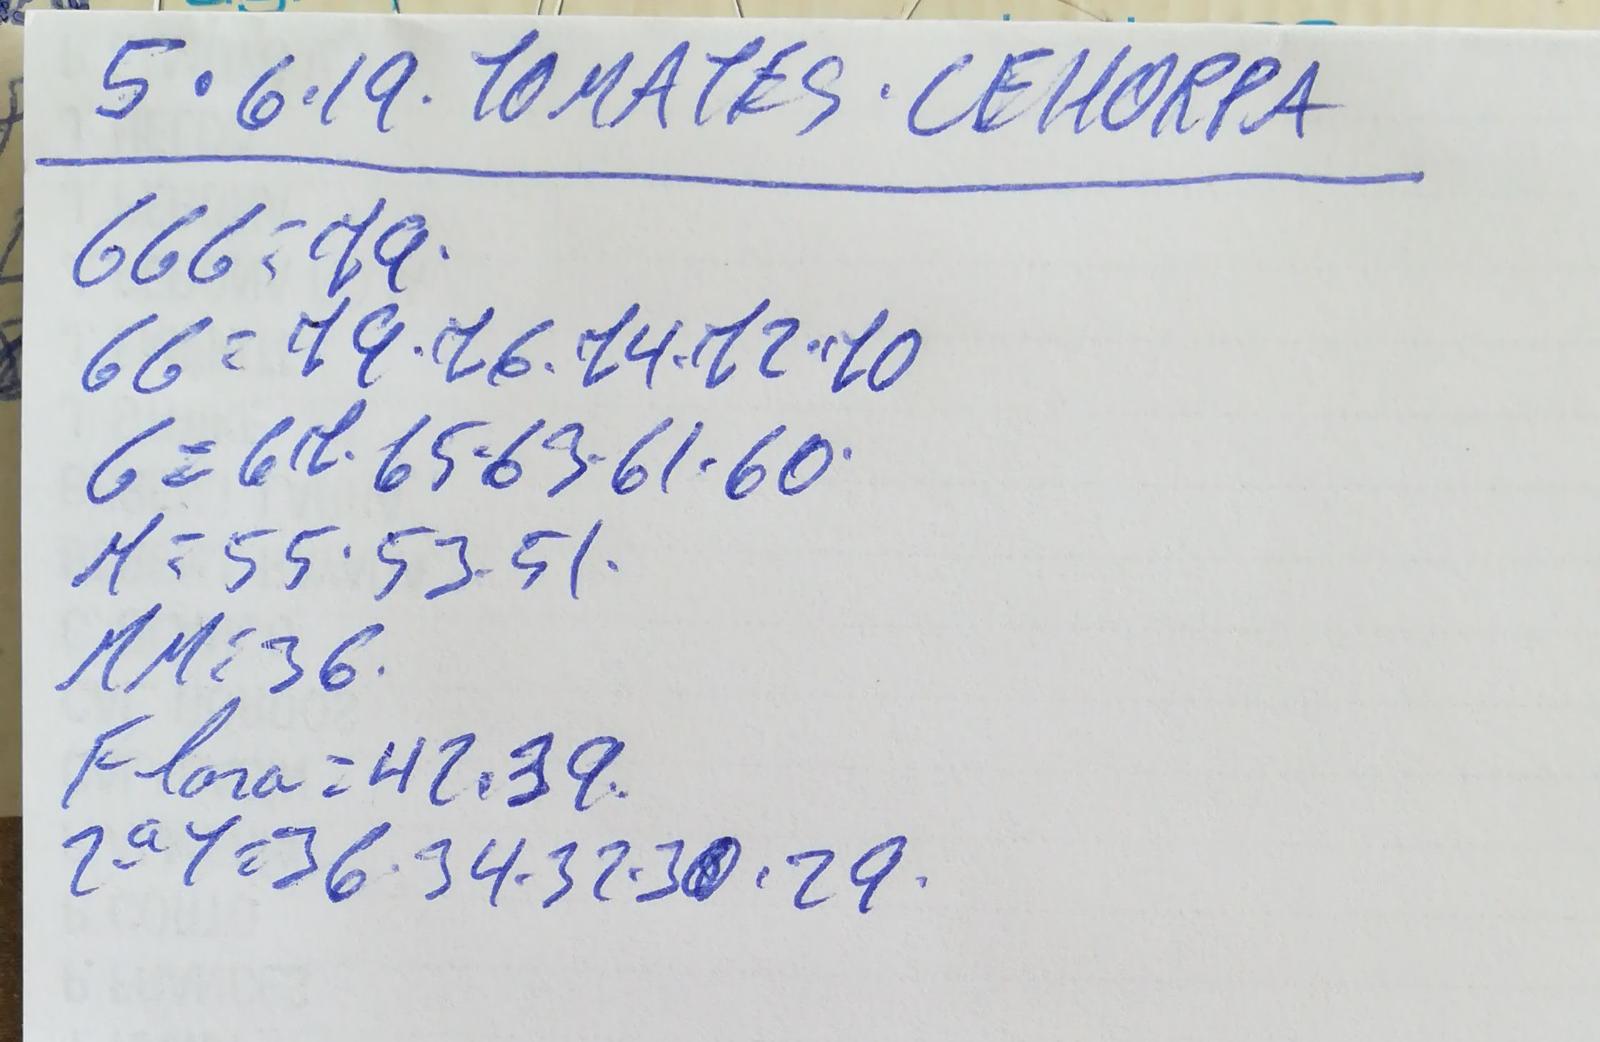 5.6.19. TOMATES. CEHORPA
666=79.
66=79.76.74.72.70
6=67.65.63.61.60.
M=55.53.51.
MM=36.
Flora=42.39.
2ªY=36.34.32.30.29.